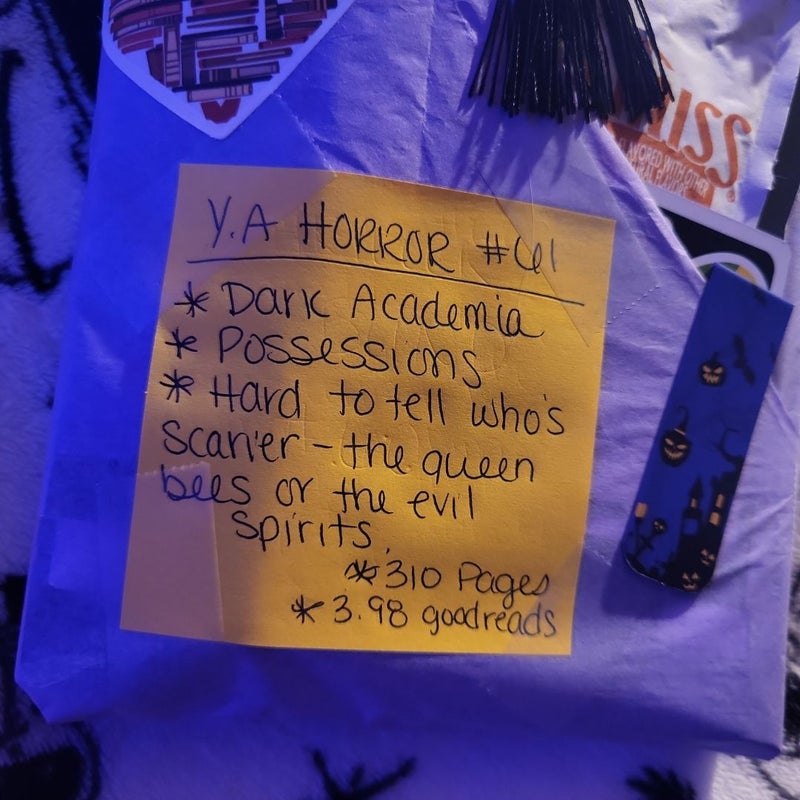 ISS
Y.A HORROR #61
* Dark Academia
* Possessions
* Hard to tell who's
scari'er - the queen
bees or the evil
spirits.
* 310 Pages
* 3.98 goodreads